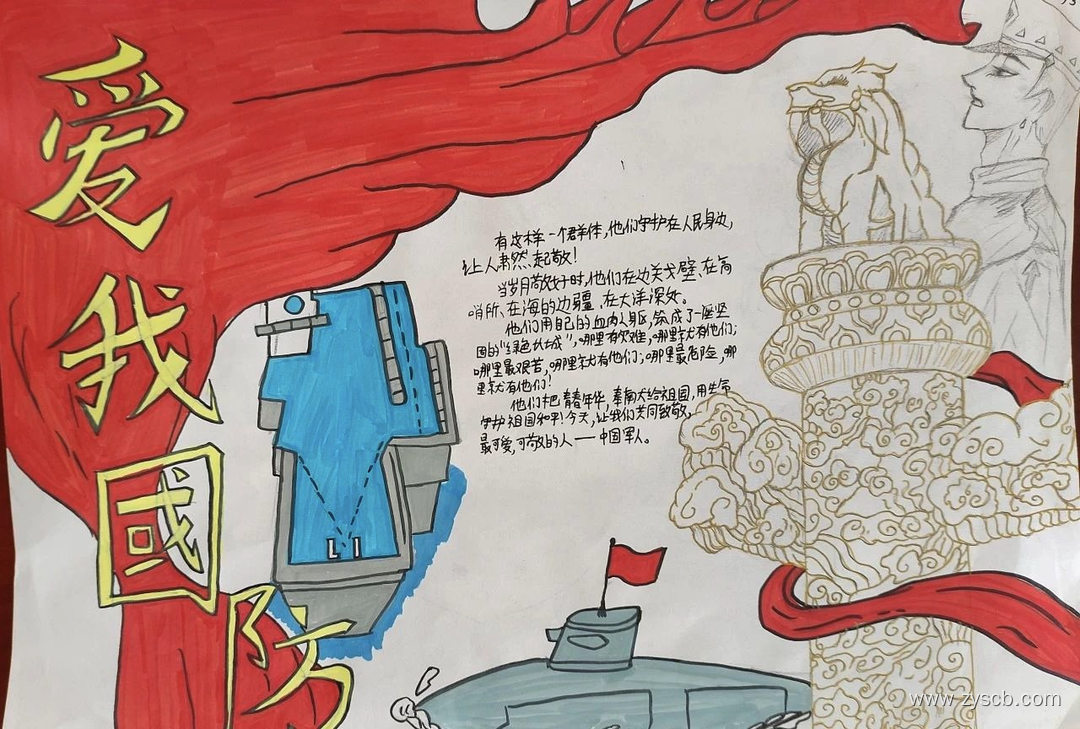 爱我國防
有这样一个群体,他们守护在人民身边,
让人肃然起敬!
当岁月静好时,他们在边关戈壁、在高
哨所、在海的边疆、在大洋深处。
他们用自己的血肉之躯,筑成了一座坚
固的“绿色长城”,哪里有灾难,哪里就有他们;
哪里最艰苦,哪里就有他们;哪里最危险,哪
里就有他们!
他们把青春年华,奉献给祖国,用生命
守护祖国和平!今天,让我们共同致敬,
最可爱,可敬的人——中国军人。
LI
www.zyscb.com